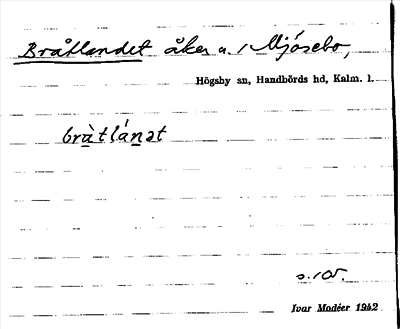 Bråtlandet åker u. Mjösebo,
Högsby sn, Handbörds hd, Kalm. l.
bràtlánət
s. 105.
Ivar Modéer 1942